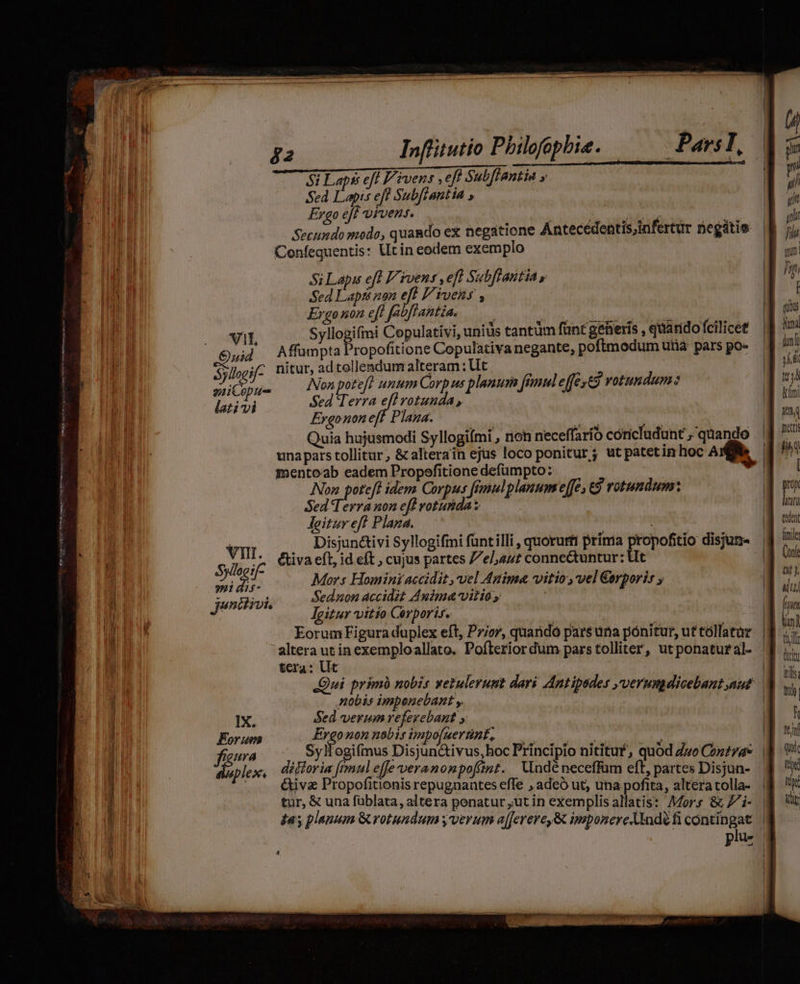 82 Institutio Philosophiæ. Pars I,
Si Lapis est Vivens, est Substantia,
Sed Lapis est Substantia,
Ergo est vivens.
Secundo modo, quando ex negatione Antecedentis, infertur negatio
Consequentis: Ut in eodem exemplo
Si Lapis est Vivens, est Substantia,
Sed Lapis non est Vivens,
Ergo non est substantia.
VII.
Quid
Syllogis-
mi Copu-
lativi
Syllogismi Copulativi, unius tantùm sunt generis, quando scilicet
Assumpta Propositione Copulativa negante, postmodum una pars po-
nitur, ad tollendum alteram: Ut
Non potest unum Corpus planum simul esse, & rotundum:
Sed Terra est rotunda,
Ergo non est Plana.
Quia hujusmodi Syllogismi, non necessariò concludunt, quando
una pars tollitur, & altera in ejus loco ponitur; ut patet in hoc
mento ab eadem Propositione desumpto:
Non potest idem Corpus simul planum esse, & rotundum:
Sed Terra non est rotunda:
Igitur est Plana.
VIII.
Syllogis-
mi dis-
junctivi.
Disjunctivi Syllogismi sunt illi, quorum prima propositio disjun-
ctiva est, id est, cujus partes Vel, aut connectuntur: Ut
Mors Homini accidit, vel Animæ vitio, vel Corporis,
Sed non accidit Animæ vitio,
Igitur vitio Corporis.
Eorum Figura duplex est, Prior, quando pars una ponitur, ut tollatur
altera ut in exemplo allato. Posterior dum pars tollitur, ut ponatur al-
tera: Ut
Qui primò nobis retulerunt dari Antipodes, verum dicebant, aut
nobis imponebant,
Sed verum referebant,
Ergo non nobis imposuerunt.
IX.
Eorum
figura
duplex.
Syllogismus Disjunctivus, hoc Principio nititur, quòd duo Contra-
dictoria simul esse vera non possint. Undè necessum est, partes Disjun-
ctivæ Propositionis repugnantes esse, adeò ut, una posita, altera tolla-
tur, & una sublata, altera ponatur, ut in exemplis allatis: Mors & Vi-
ta; planum & rotundum; verum asserere, & imponere. Undè si contingat
plu-